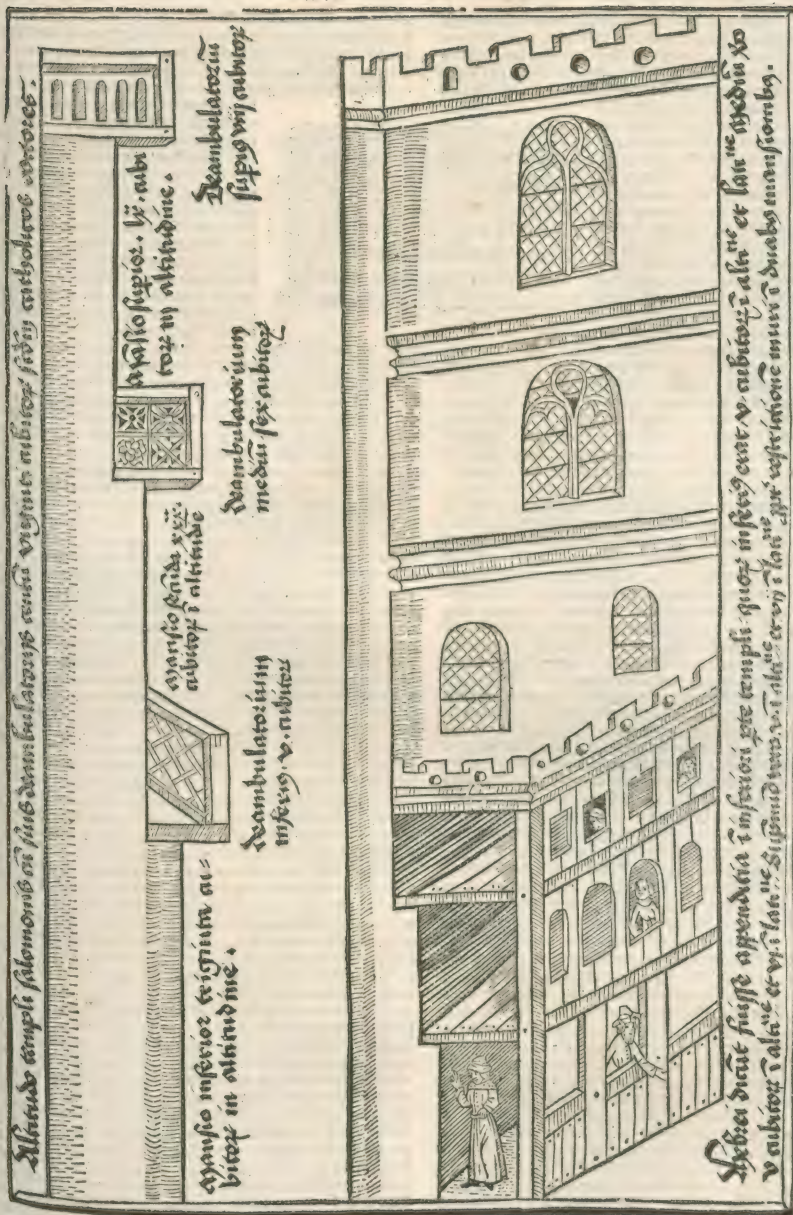 Altitudo templi salomonis cū suis deambulatoriis centū viginti cubitoꝝ scdm̄ catholicos
mansio inferior triginta cu=
bitoꝝ in altitudine.
deambulatorium
inferiꝰ. v. cubitoꝝ
mansio scd̄a xxx.
cubitoꝝ ī altitudīe
deambulatorium
mediū sex cubitoꝝ
mansio supior. lx. cubi
toꝝ in altitudine.
deambulatoriū
supiꝰ vij cubitoꝝ
Hebrei dicūt fuisse appendicia ī inferiori pte templi quoꝝ inferiꝰ erat v. cubitoꝝ ī altine et latine mediū v̄o
v cubitoꝝ ī altine et vj. ī latine. et vij ī latine muri ī duabꝰ mansionibꝰ.